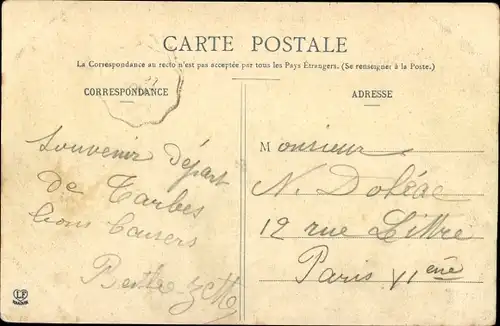 CARTE POSTALE
La Correspondance au recto n'est pas acceptée par tous les Pays Étrangers. (Se renseigner à la Poste.)
CORRESPONDANCE
ADRESSE
Souvenir Départ
de Tarbes
bons baisers
Berthe
Monsieur
N. Doléac
12 rue Littré
Paris VIème
LF